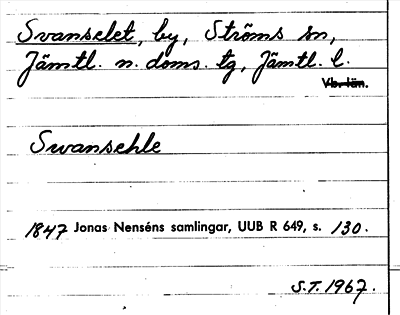 Svanselet, by, Ströms sn,
Jämtl. n. doms. tg, Jämtl. l.
Vb. län.
Swansehle
1847 Jonas Nenséns samlingar, UUB R 649, s. 130.
S.T. 1967.